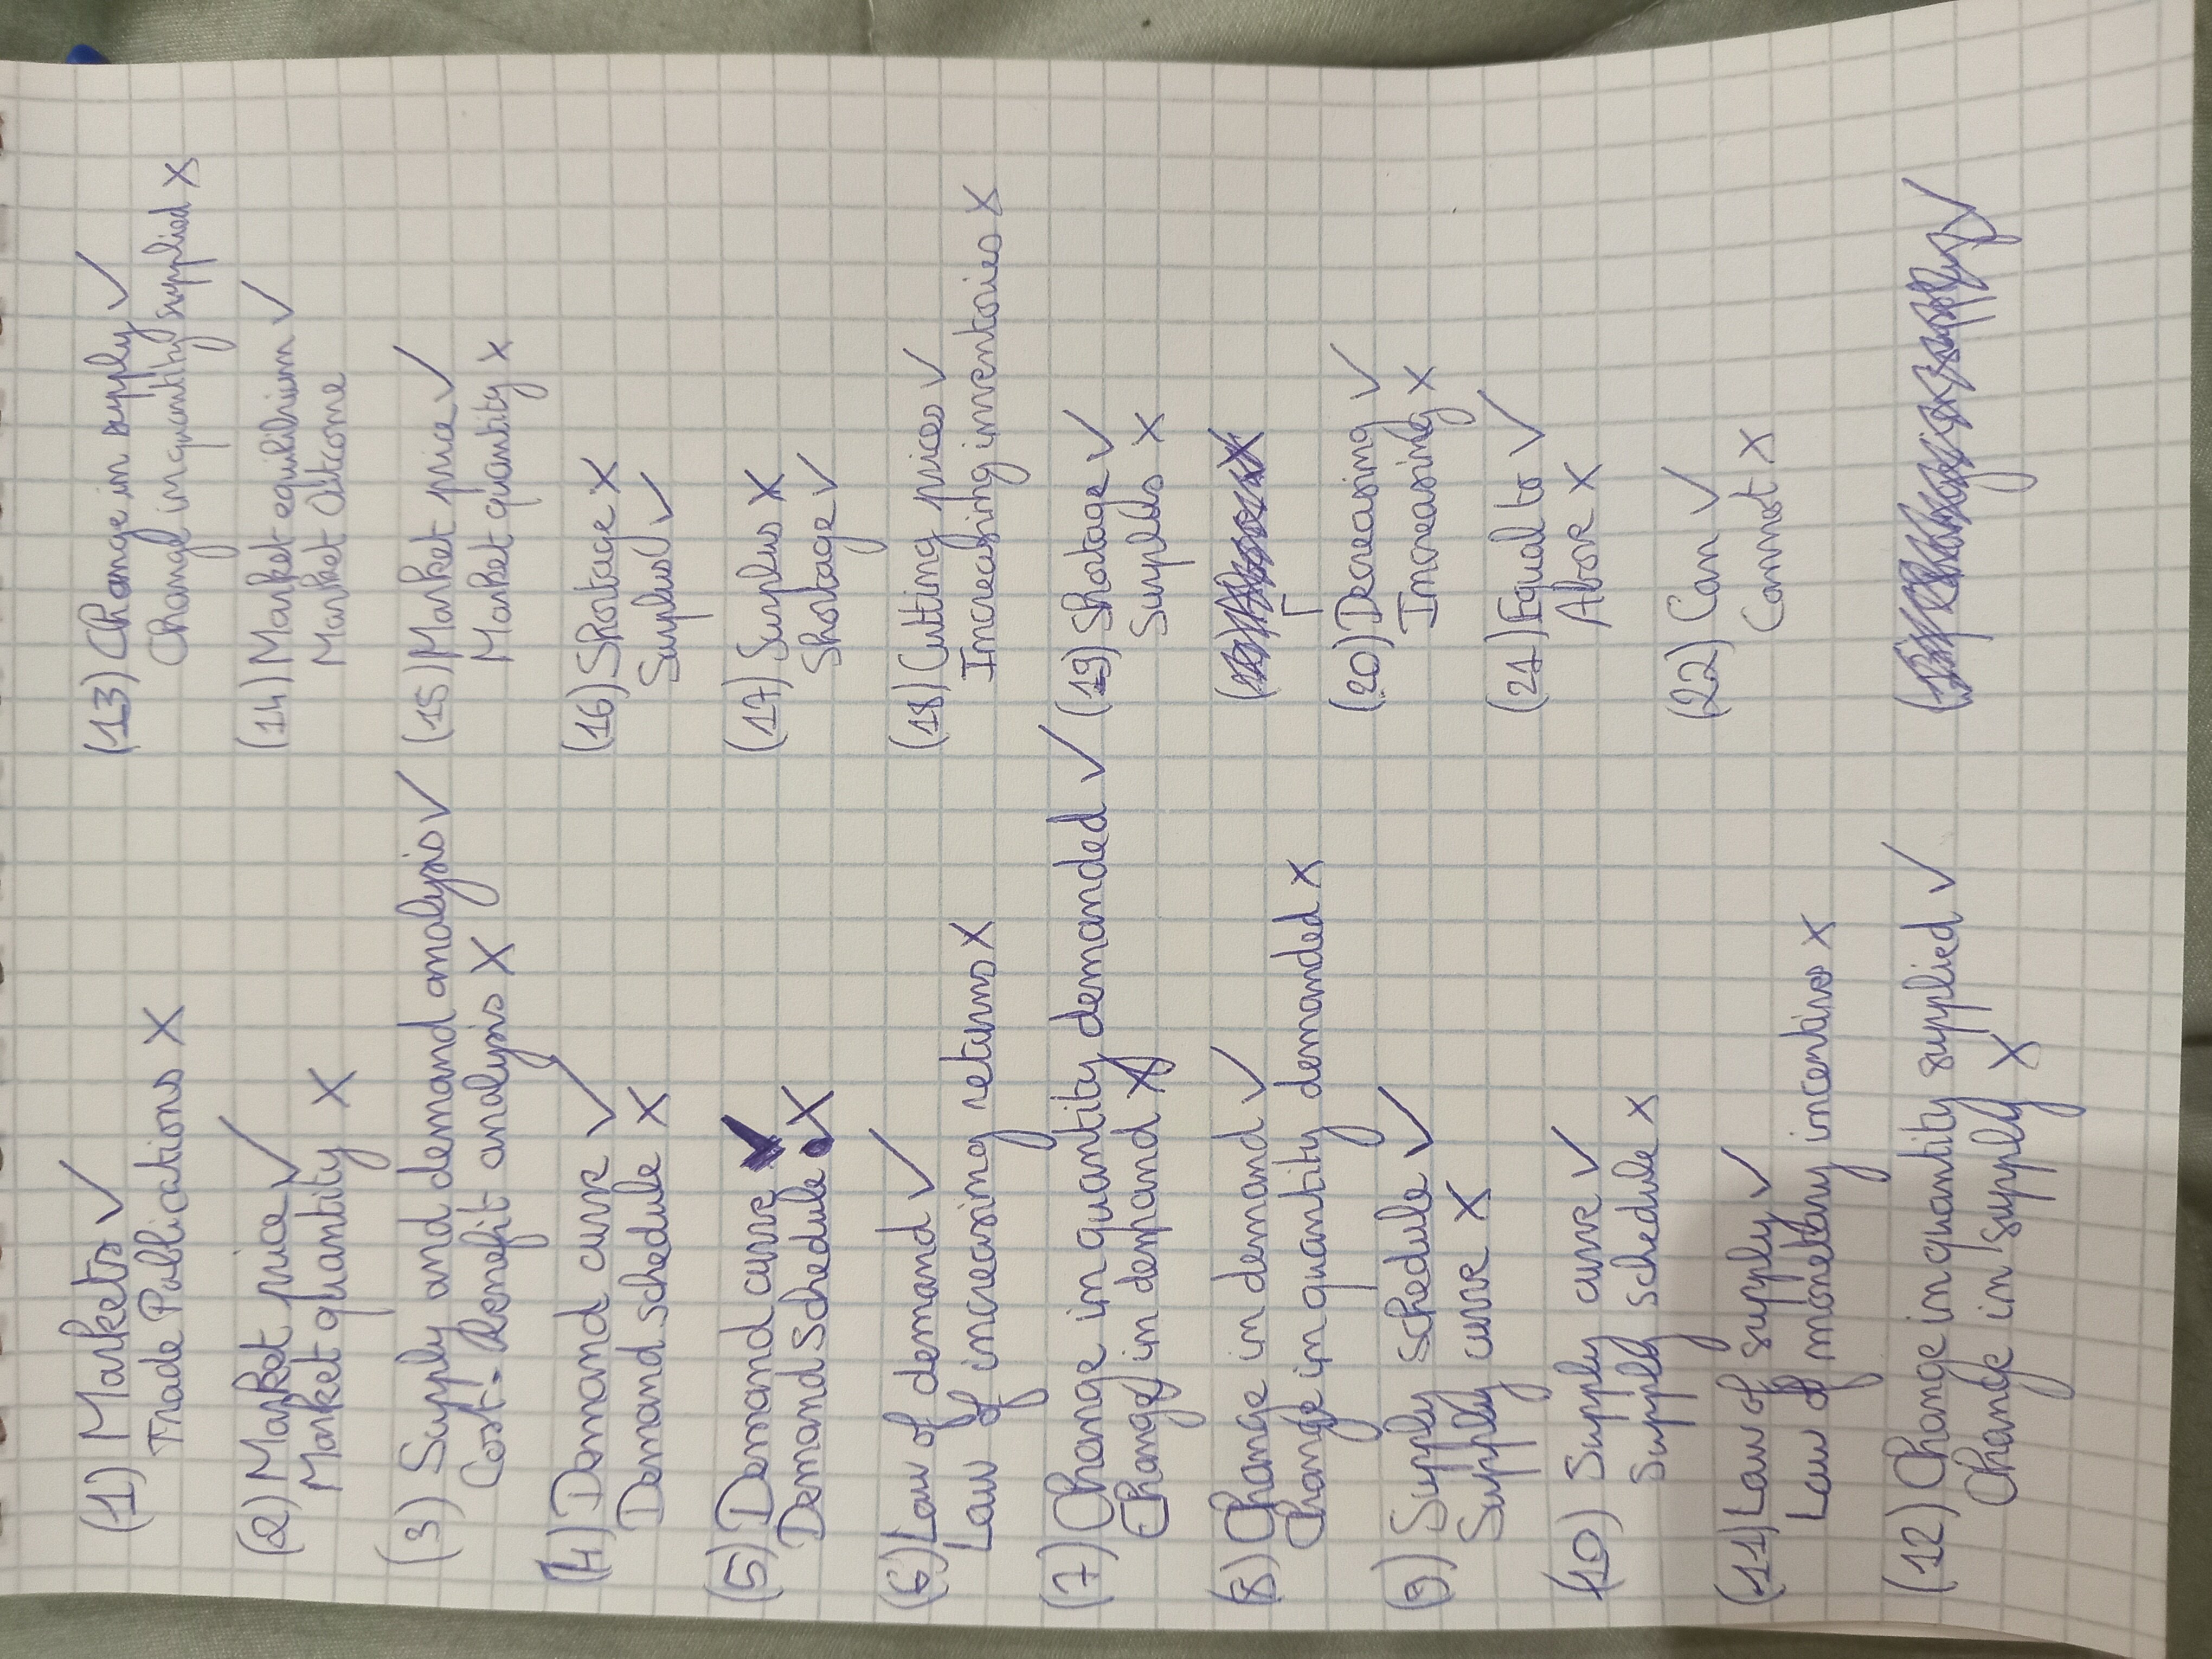 (1) Markets ✓
Trade Publications X
(2) Market price ✓
Market quantity X
(3) Supply and demand analysis ✓
Cost-Benefit analysis X
(4) Demand curve ✓
Demand schedule X
(5) Demand curve
Demand schedule X
(6) Law of demand ✓
Law of increasing returns X
(7) Change in quantity demanded ✓
Change in demand X
(8) Change in demand ✓
Change in quantity demanded X
(9) Supply schedule ✓
Supply curve X
(10) Supply curve ✓
Supply schedule X
(11) Law of supply ✓
Law of monetary incentives X
(12) Change in quantity supplied ✓
Change in supply X
(13) Change in supply ✓
Change in quantity supplied X
(14) Market equilibrium ✓
Market Outcome
(15) Market price ✓
Market quantity X
(16) Shortage X
Surplus ✓
(17) Surplus X
Shortage ✓
(18) Cutting prices ✓
Increasing inventories X
(19) Shortage ✓
Surplus X
(20) Decreasing ✓
Increasing X
(21) Equal to ✓
Above X
(22) Can ✓
Cannot X